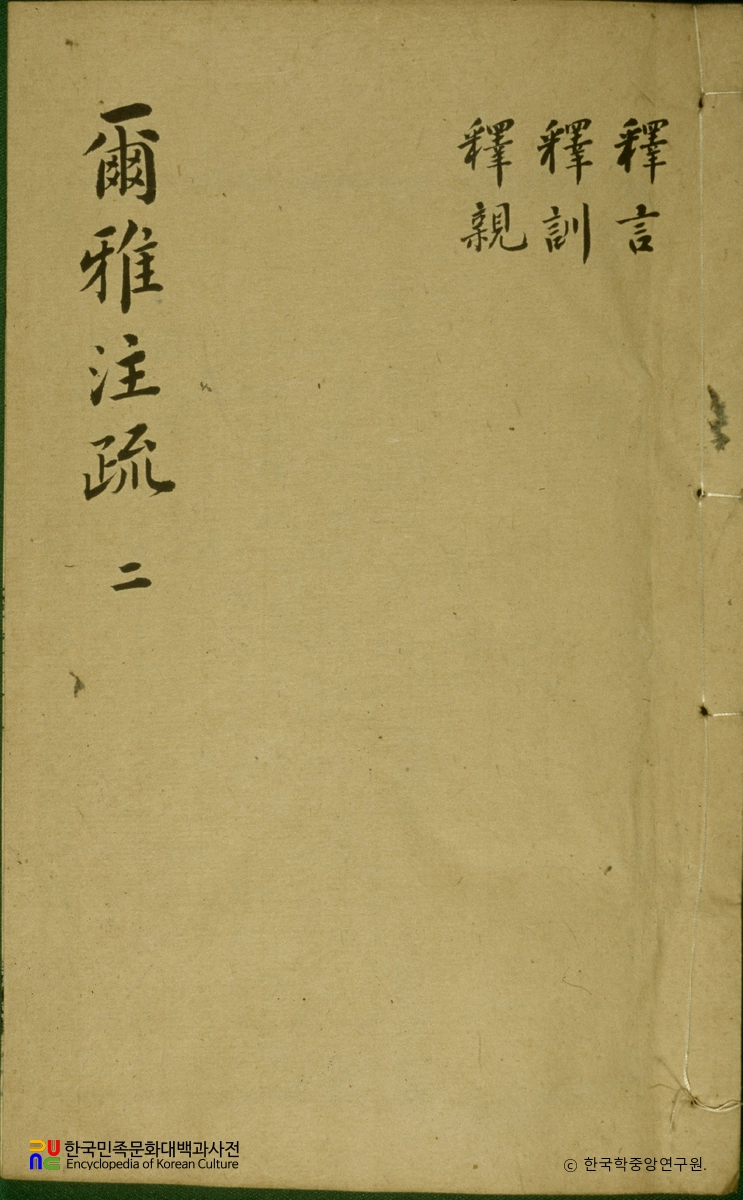 釋言
釋訓
釋親
爾雅注疏 二
한국민족문화대백과사전
Encyclopedia of Korean Culture
© 한국학중앙연구원.